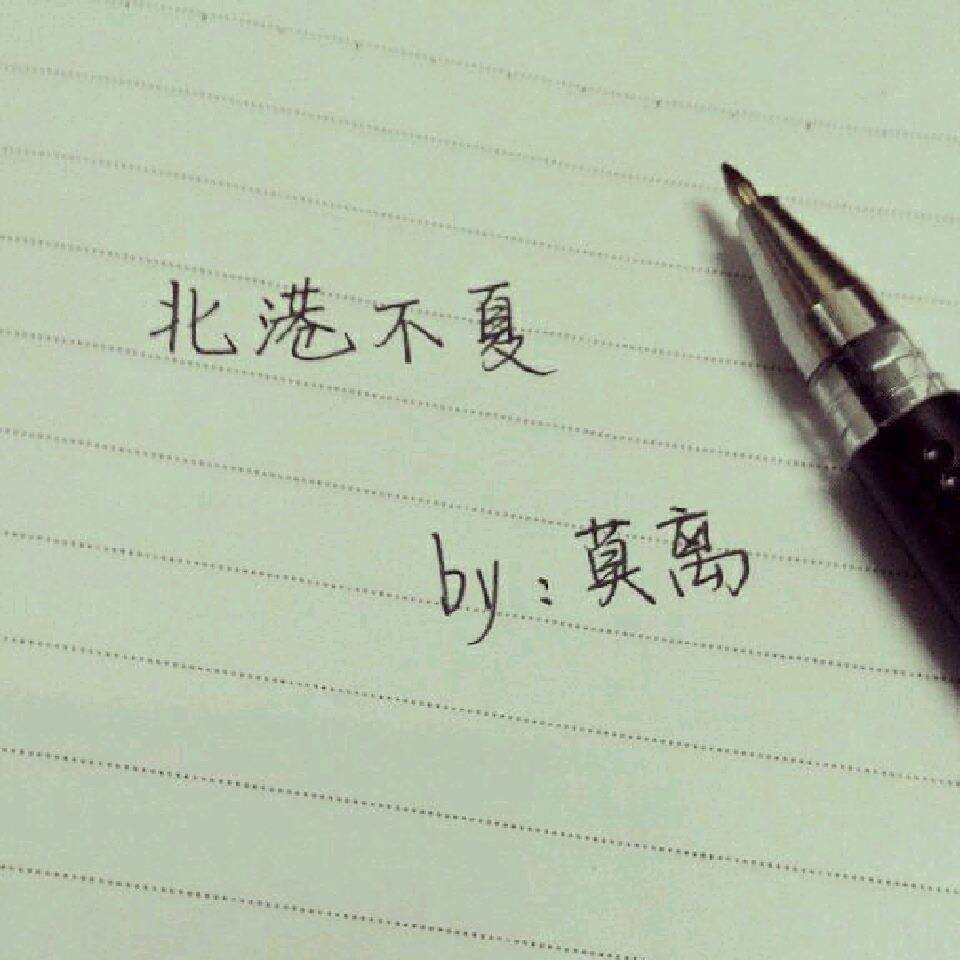 北港不夏
by:莫离